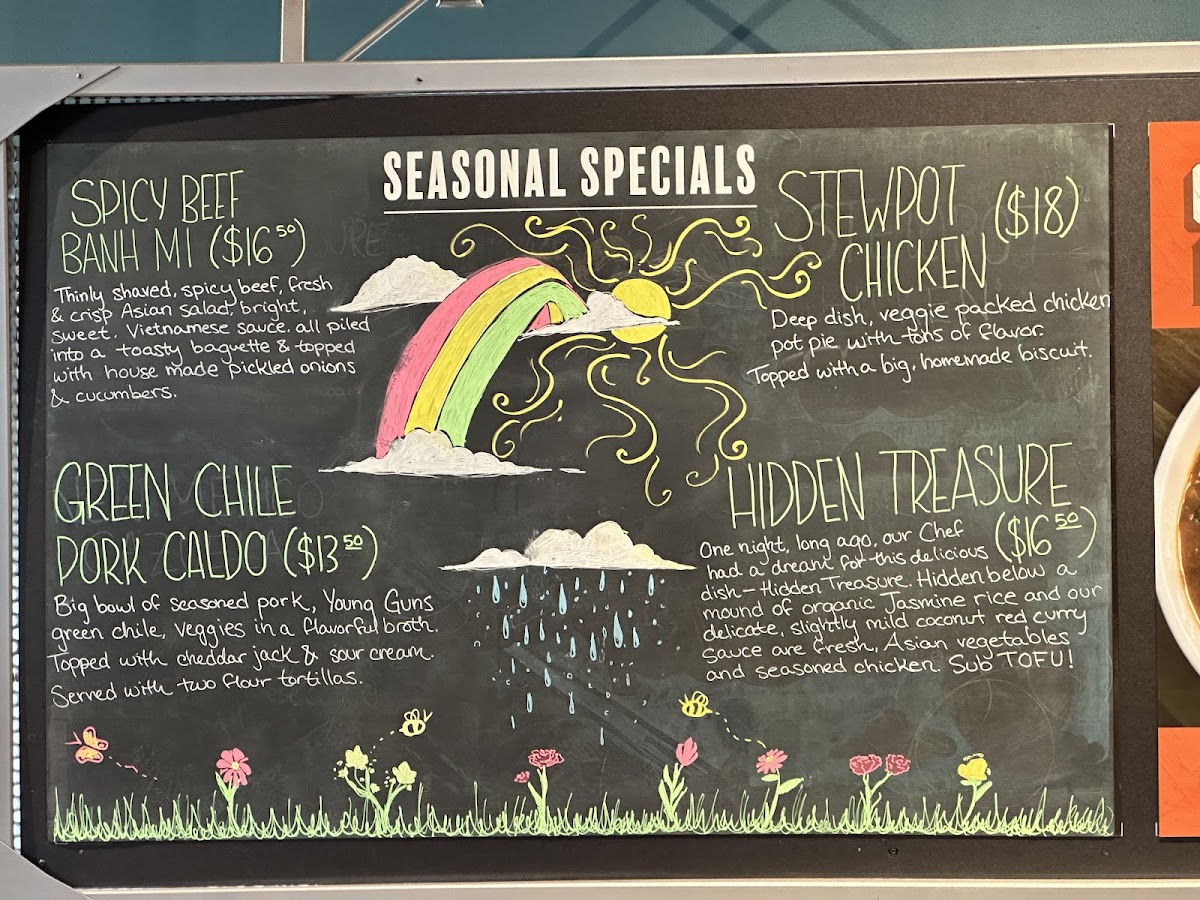 SEASONAL SPECIALS
SPICY BEEF
BANH MI ($16 50)
Thinly shaved, spicy beef, fresh
& crisp Asian salad, bright,
sweet. Vietnamese sauce, all piled
into a toasty baguette & topped
with house made pickled onions
& cucumbers.
GREEN CHILE
PORK CALDO ($13 50)
Big bowl of seasoned pork, Young Guns
green chile, veggies in a flavorful broth.
Topped with cheddar jack & sour cream.
Served with two flour tortillas.
STEWPOT ($18)
CHICKEN
Deep dish, veggie packed chicken
pot pie with tons of flavor.
Topped with a big, homemade biscuit.
HIDDEN TREASURE
($16 50)
One night, long ago, our Chef
had a dream for this delicious
dish - Hidden Treasure. Hidden below a
mound of organic Jasmine rice and our
delicate, slightly mild coconut red curry
sauce are fresh, Asian vegetables
and seasoned chicken. Sub TOFU!